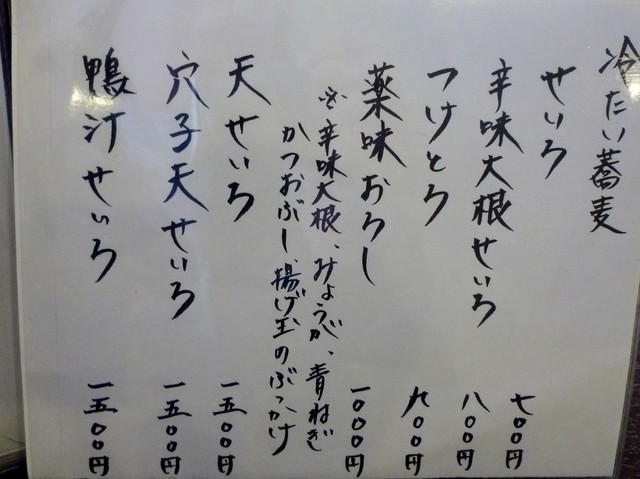 冷たい蕎麦
せいろ 七〇〇円
辛味大根せいろ 八〇〇円
つけとろ 九〇〇円
薬味おろし 一〇〇〇円
辛味大根、みょうが、青ねぎ
かつおぶし、揚げ玉のぶっかけ
天せいろ 一五〇〇円
穴子天せいろ 一五〇〇円
鴨汁せいろ 一五〇〇円